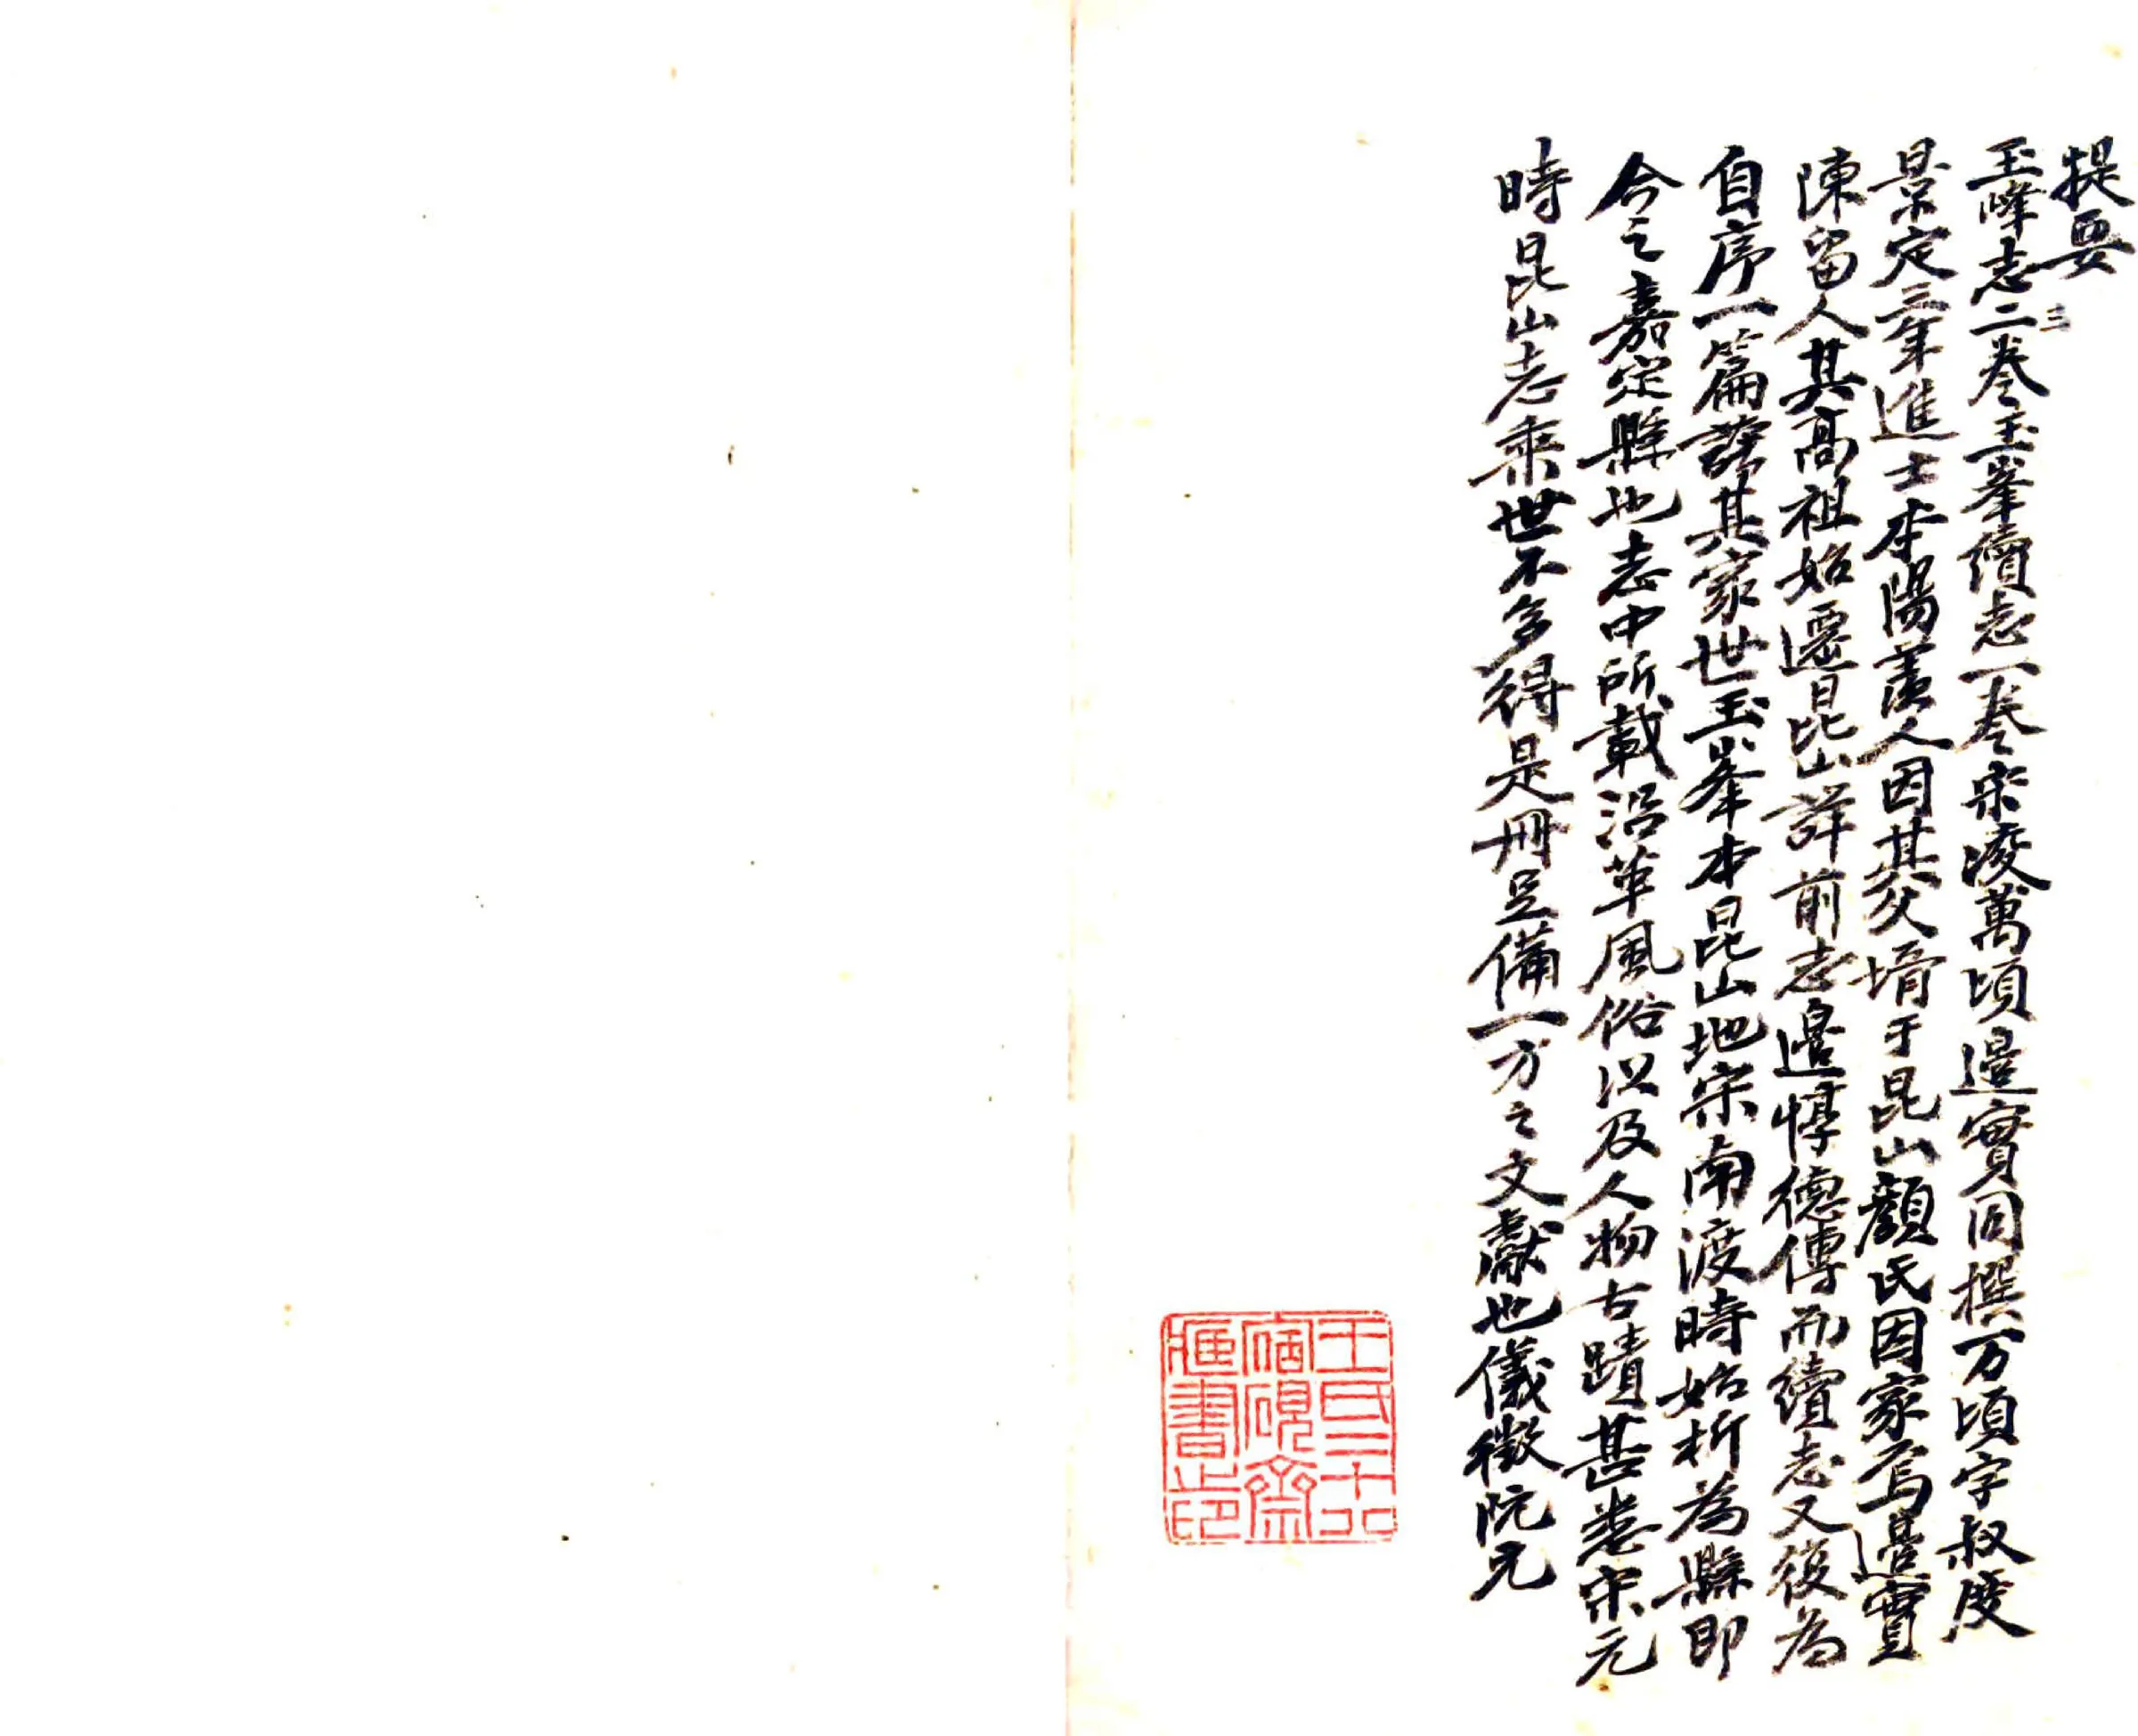 提要
玉峰志三二卷玉峯續志一卷宋凌萬頃邊實同撰万頃字叔度
景定三年進士本陽羨人因其父壻于昆山顏氏因家焉邊實
陳留人其高祖始遷昆山詳前志邊惇德傳而續志又後為
自序一篇謀其家世玉峯本昆山地宋南渡時始析為縣即
今之嘉定縣也志中所載沿革風俗以及人物古蹟甚悉宋元
時昆山志乘世不多得是冊足備一方之文獻也儀徵阮元
王氏二十八
宿硯齋
藏書之印